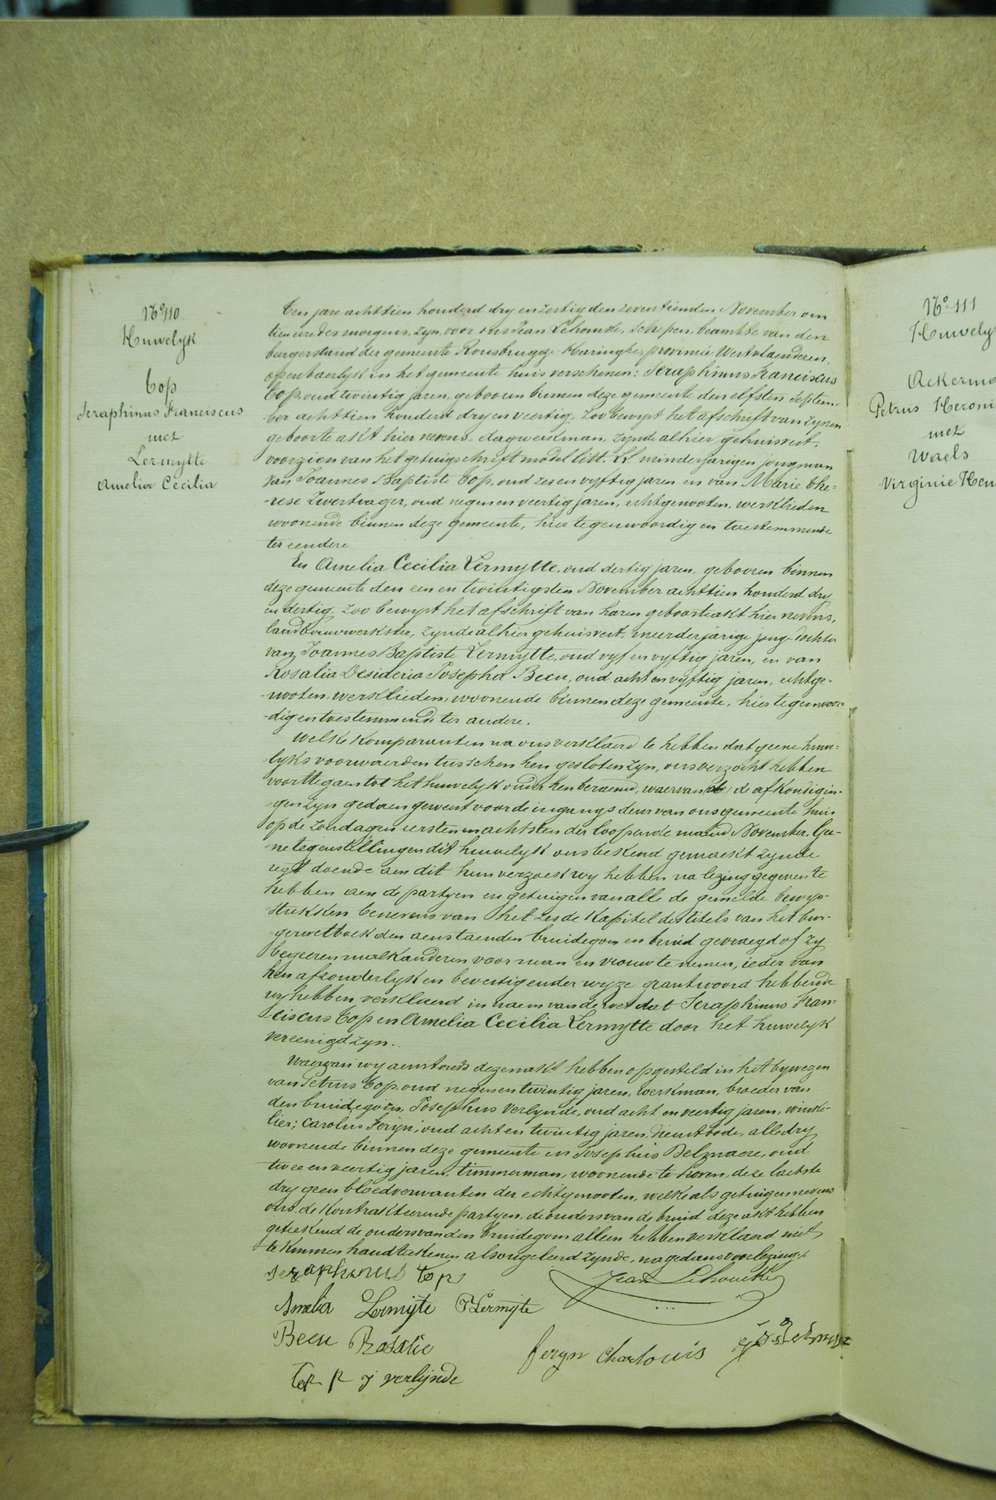 N° 110
Huwelyk
Top
Seraphinus Franciscus
met
Lermytte
Amelia Cecilia
Ten jare achttien honderd dry en zestig den zeventienden November om
tien ure des morgens, zyn voor ons Jean Lehoucke, schepen, beambte van den
burgerstand der gemeente Rousbrugge Haringhe, provincie Westvlaenderen,
openbaerlyk in het gemeente huis verschenen: Seraphinus Franciscus
Top, oud twintig jaren, geboren binnen deze gemeente den elfsten Septem-
ber achttien honderd dry en veertig, zoo bewyst het afschrift van zynen
geboorte akt hier nevens, dagwerkman, zynde alhier gehuisvest,
voorzien van het getuigschrift model litt. minderjarigen jongman
van Joannes Baptiste Top, oud zes en vyftig jaren en van Marie The-
rese Zwertvager, oud negen en veertig jaren, echtgenooten, werklieden
woonende binnen deze gemeente, hier tegenwoordig en toestemmende
ter eendere
En Amelia Cecilia Lermytte, oud dertig jaren, geboren binnen
deze gemeente den een en twintigsten November achttien honderd dry
en dertig, zoo bewyst het afschrift van haren geboorteakt hier nevens,
landbouwwerkster, zynde alhier gehuisvest, meerderjarige jonge dochter
van Joannes Baptiste Lermytte, oud vyf en vyftig jaren, en van
Rosalia Desideria Josepha Becu, oud acht en vyftig jaren, echtge-
nooten, werklieden, woonende binnen deze gemeente, hier tegenwoor-
dig en toestemmende ter andere.
Welke komparanten na ons verklaerd te hebben dat geene huwe-
lyks voorwaerden tusschen hen gesloten zyn, ons verzocht hebben
voorttegaen tot het huwelyk onder hen beraemd, waervan de afkondigin-
gen zyn gedaen geweest voor de ingangs deur van ons gemeente huis
op de zondagen eersten en achtsten der loopende maend November. Gee-
ne tegenstellingen dit huwelyk ons bekend gemaekt zynde
regt doende aen dit hun verzoek wy hebben na lezing gegeven te
hebben aen de partyen en getuigen van alle de gemelde bewys-
stukken benevens van het zesde kapitel des titels van het bur-
gerwetboek den aenstaenden bruidegom en bruid gevraegd of zy
begeeren malkanderen voor man en vrouw te nemen, ieder van
hen afzonderlyk en bevestigender wyze geantwoord hebbende
wy hebben verklaerd in naem van de wet dat Seraphinus Fran-
ciscus Top en Amelia Cecilia Lermytte door het huwelyk
vereenigd zyn.
Waervan wy aenstonds dezen akt hebben opgesteld in het bywezen
van Petrus Top oud negen en twintig jaren, werkman, broeder van
den bruidegom, Josephus Verlynde, oud acht en veertig jaren, winke-
lier; Carolus Feryn, oud acht en twintig jaren, dienstbode, alle dry
woonende binnen deze gemeente en Josephus Delznaere, oud
twee en veertig jaren, timmerman, woonende te hoven, deze laetste
dry geen bloedverwanten der echtgenooten, welke als getuigen nevens
ons de kontrakteerende partyen, de ouders van de bruid dezen akt hebben
geteekend de ouders van den bruidegom alleen hebben verklaerd niet
te kunnen handteekenen als ongeleerd zynde, na gedane voorlezing.
seraphinus top
Jean Lehoucke
Amelia Lermijte Lermyte
Becu Rosalie
feryn charlouis
Top p j verlijnde
N° 111
Huwelyk
Petrus
met
Waels
Virginie